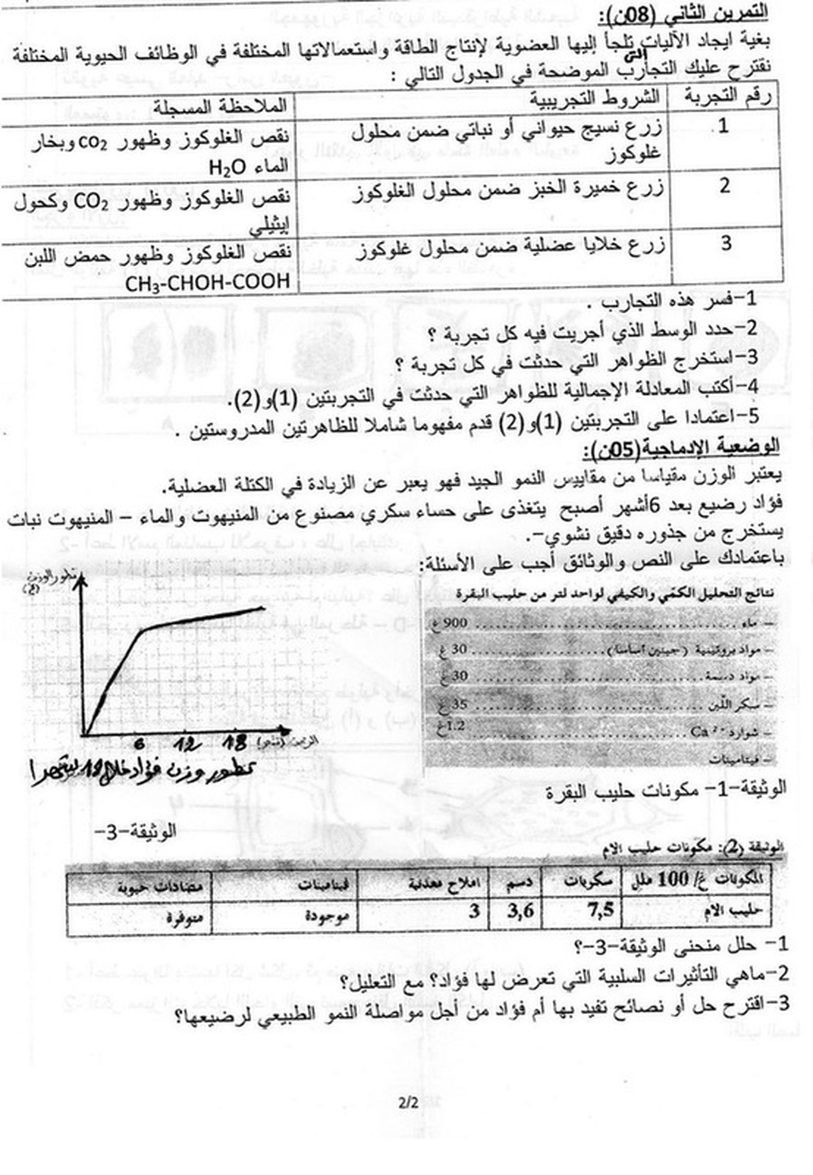 التمرين الثاني (08ن):
بغية ايجاد الآليات التي تلجأ إليها العضوية لإنتاج الطاقة واستعمالاتها المختلفة في الوظائف الحيوية المختلفة
نقترح عليك التجارب الموضحة في الجدول التالي :
رقم التجربة الشروط التجريبية الملاحظة المسجلة
1 زرع نسيج حيواني أو نباتي ضمن محلول غلوكوز نقص الغلوكوز وظهور co2 وبخار الماء H2O
2 زرع خميرة الخبز ضمن محلول الغلوكوز نقص الغلوكوز وظهور CO2 وكحول إيثيلي
3 زرع خلايا عضلية ضمن محلول غلوكوز نقص الغلوكوز وظهور حمض اللبن CH3-CHOH-COOH
1-فسر هذه التجارب
2-حدد الوسط الذي أجريت فيه كل تجربة ؟
3-استخرج الظواهر التي حدثت في كل تجربة ؟
4-أكتب المعادلة الإجمالية للظواهر التي حدثت في التجربتين (1)و(2).
5-اعتمادا على التجربتين (1)و(2) قدم مفهوما شاملا للظاهرتين المدروستين .
الوضعية الإدماجية(05ن):
يعتبر الوزن مقياسا من مقاييس النمو الجيد فهو يعبر عن الزيادة في الكتلة العضلية.
فؤاد رضيع بعد 6أشهر أصبح يتغذى على حساء سكري مصنوع من المنيهوت والماء – المنيهوت نبات
يستخرج من جذوره دقيق نشوي-.
باعتمادك على النص والوثائق أجب على الأسئلة:
نتائج التحليل الكمّي والكيفي لواحد لتر من حليب البقرة
– ماء ........ 900غ
– مواد بروتينية (جبنين أساسا) ........ 30 غ
– مواد دسمة ........ 30غ
– سكر اللّبن ........ 35غ
– شوارد Ca2+ ........ 1.2غ
– فيتامينات
الوثيقة-1- مكونات حليب البقرة
تطور الوزن
6 12 18 الزمن (شهر)
تطور وزن فؤاد خلال 19 شهرا
الوثيقة-3-
الوثيقة (2): مكونات حليب الام
المكونات غ/ 100 ملل سكريات دسم املاح معدنية فيتامينات مضادات حيوية
حليب الام 7,5 3,6 3 موجودة متوفرة
1- حلل منحنى الوثيقة-3-؟
2-ماهي التأثيرات السلبية التي تعرض لها فؤاد؟ مع التعليل؟
3-اقترح حل أو نصائح تفيد بها أم فؤاد من أجل مواصلة النمو الطبيعي لرضيعها؟
2/2